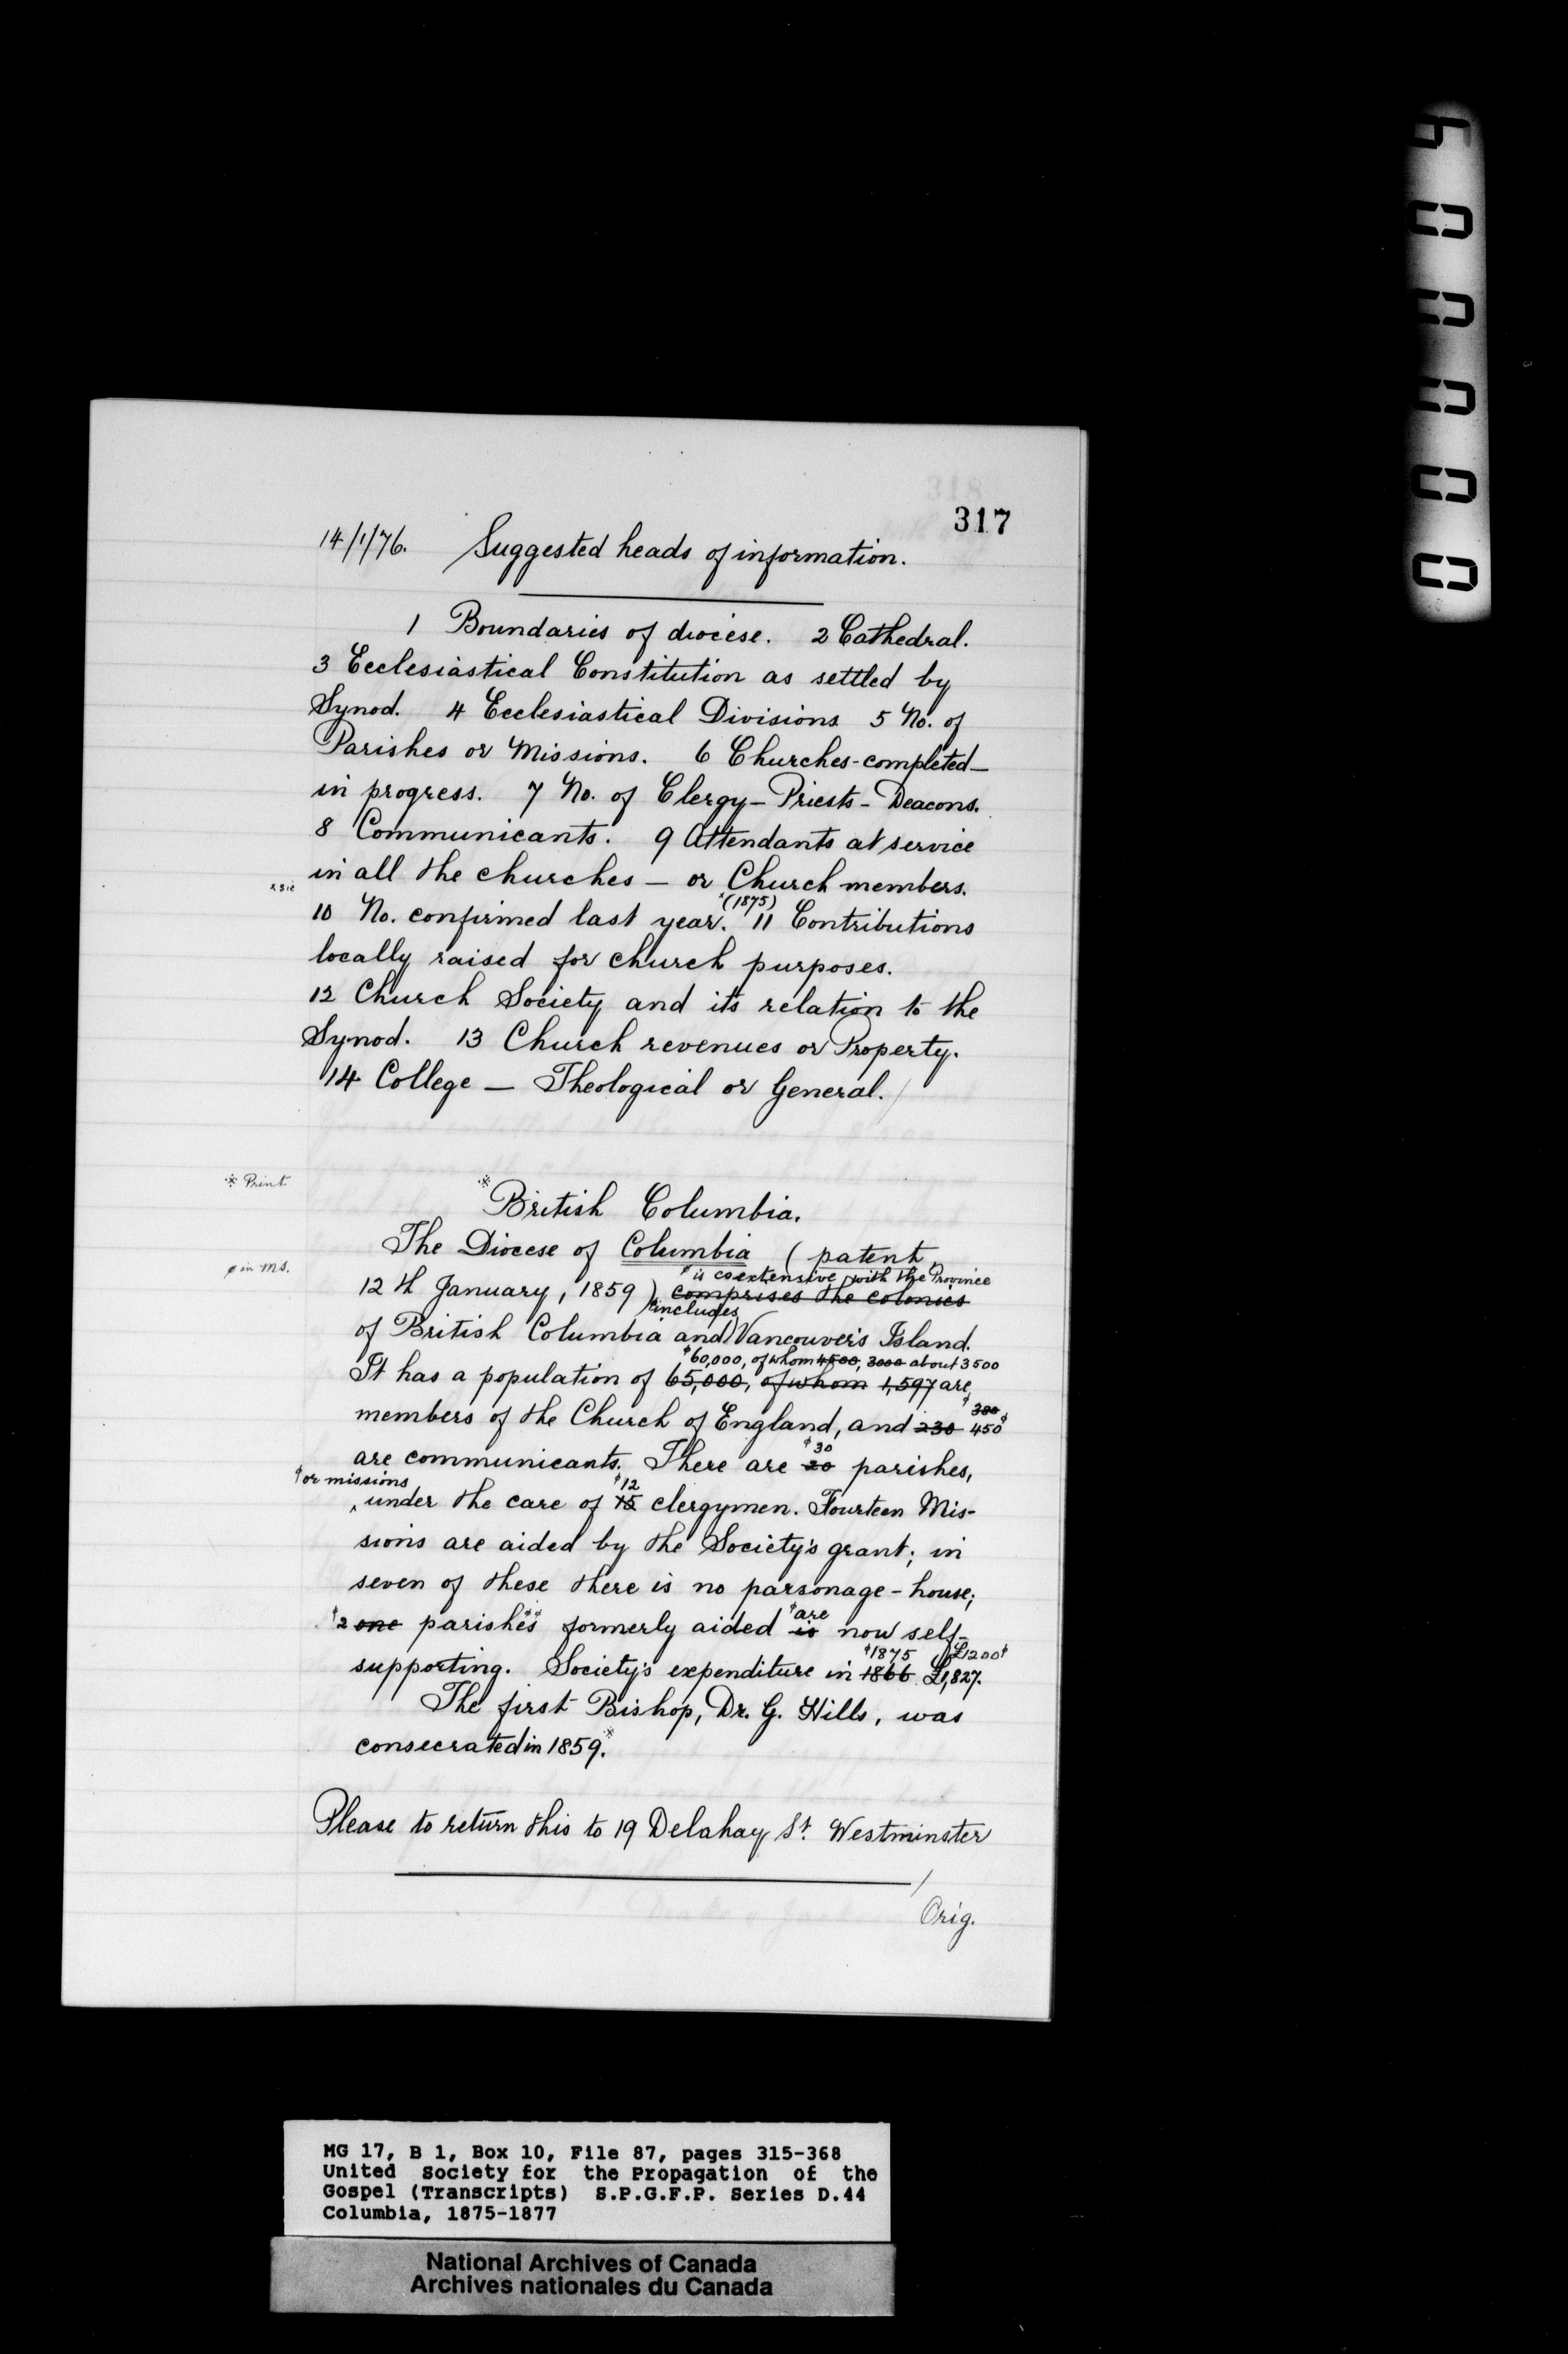 317
14/1/76. Suggested heads of information.
1 Boundaries of diocese. 2 Cathedral.
3 Ecclesiastical Constitution as settled by
Synod. 4 Ecclesiastical Divisions 5 No. of
Parishes or Missions. 6 Churches-completed—
in progress. 7 No. of Clergy—Priests—Deacons.
8 Communicants. 9 Attendants at service
in all the churches — or Church members.
x sic
x(1875)
10 No. confirmed last year. 11 Contributions
locally raised for church purposes.
12 Church Society and its relation to the
Synod. 13 Church revenues or Property.
14 College — Theological or General.
* Print
* British Columbia.
The Diocese of Columbia (patent
ø in MS.
ø is coextensive with the Province
12th January, 1859) comprises the colonies
ø includes
of British Columbia and Vancouver's Island.
ø 60,000, of whom 4500, 3000 about 3500
It has a population of 65,000, of whom 1,597 are
ø 300
members of the Church of England, and 230 450 ø
ø 30
are communicants. There are 20 parishes,
ø or missions
ø 12
under the care of 15 clergymen. Fourteen Mis-
sions are aided by the Society's grant; in
seven of these there is no parsonage-house;
ø are
ø 2 one parishes formerly aided is now self-
ø 1875 £1200 ø
supporting. Society's expenditure in 1866 £1,827.
The first Bishop, Dr. G. Hills, was
consecrated in 1859. *
Please to return this to 19 Delahay St. Westminster
Orig.
MG 17, B 1, Box 10, File 87, pages 315-368
United Society for the Propagation of the
Gospel (Transcripts) S.P.G.F.P. Series D.44
Columbia, 1875-1877
National Archives of Canada
Archives nationales du Canada